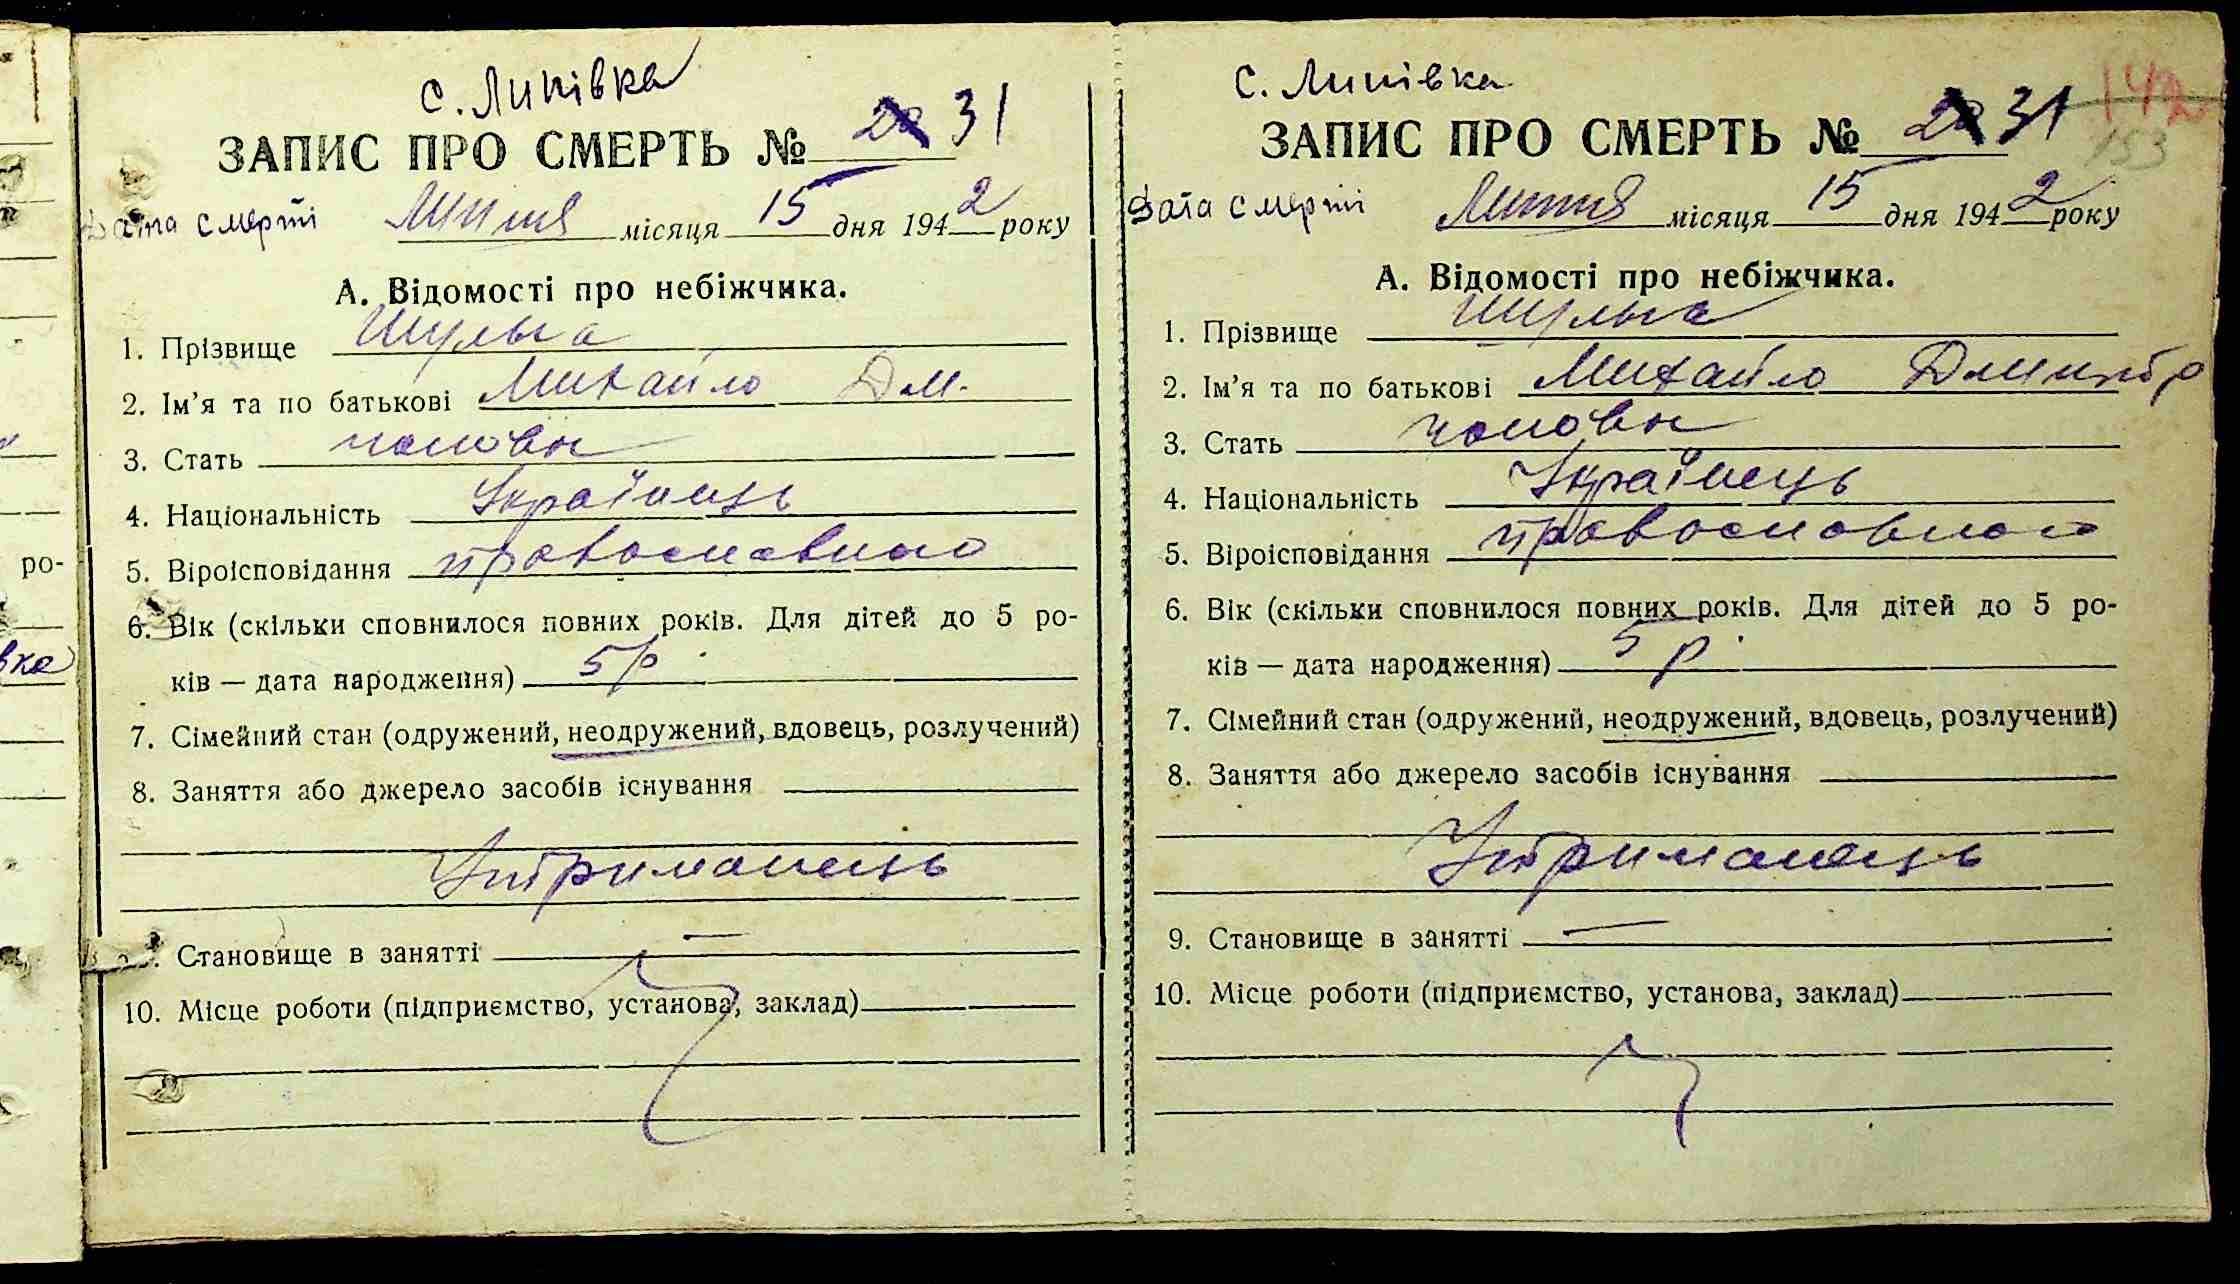 с. Липівка
ЗАПИС ПРО СМЕРТЬ № 31
Дата смерті Липня місяця 15 дня 1942 року
А. Відомості про небіжчика.
1. Прізвище Шульга
2. Ім'я та по батькові Михайло Дм.
3. Стать чоловіч
4. Національність Українець
5. Віроісповідання православного
6. Вік (скільки сповнилося повних років. Для дітей до 5 ро-
ків — дата народження) 5 р.
7. Сімейний стан (одружений, неодружений, вдовець, розлучений)
8. Заняття або джерело засобів існування
Утриманець
9. Становище в занятті —
10. Місце роботи (підприємство, установа, заклад)
с. Липівка
142
153
ЗАПИС ПРО СМЕРТЬ № 31
Дата смерті Липня місяця 15 дня 1942 року
А. Відомості про небіжчика.
1. Прізвище Шульга
2. Ім'я та по батькові Михайло Дмитр
3. Стать чоловіч
4. Національність Українець
5. Віроісповідання православного
6. Вік (скільки сповнилося повних років. Для дітей до 5 ро-
ків — дата народження) 5 р.
7. Сімейний стан (одружений, неодружений, вдовець, розлучений)
8. Заняття або джерело засобів існування
Утриманець
9. Становище в занятті —
10. Місце роботи (підприємство, установа, заклад)
ро-
вка